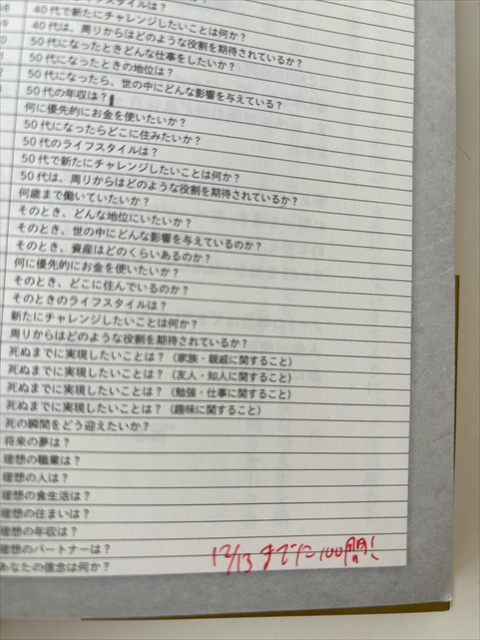 ライフスタイルは？
40代で新たにチャレンジしたいことは何か？
40代は、周りからはどのような役割を期待されているか？
50代になったときどんな仕事をしたいか？
50代になったときの地位は？
50代になったら、世の中にどんな影響を与えている？
50代の年収は？
何に優先的にお金を使いたいか？
50代になったらどこに住みたいか？
50代のライフスタイルは？
50代で新たにチャレンジしたいことは何か？
50代は、周りからはどのような役割を期待されているか？
何歳まで働いていたいか？
そのとき、どんな地位にいたいか？
そのとき、世の中にどんな影響を与えているのか？
そのとき、資産はどのくらいあるのか？
何に優先的にお金を使いたいか？
そのとき、どこに住んでいるのか？
そのときのライフスタイルは？
新たにチャレンジしたいことは何か？
周りからはどのような役割を期待されているか？
死ぬまでに実現したいことは？（家族・親戚に関すること）
死ぬまでに実現したいことは？（友人・知人に関すること）
死ぬまでに実現したいことは？（勉強・仕事に関すること）
死ぬまでに実現したいことは？（趣味に関すること）
死の瞬間をどう迎えたいか？
将来の夢は？
理想の職業は？
理想の人は？
理想の食生活は？
理想の住まいは？
理想の年収は？
理想のパートナーは？
あなたの信念は何か？
12/13までに100問！